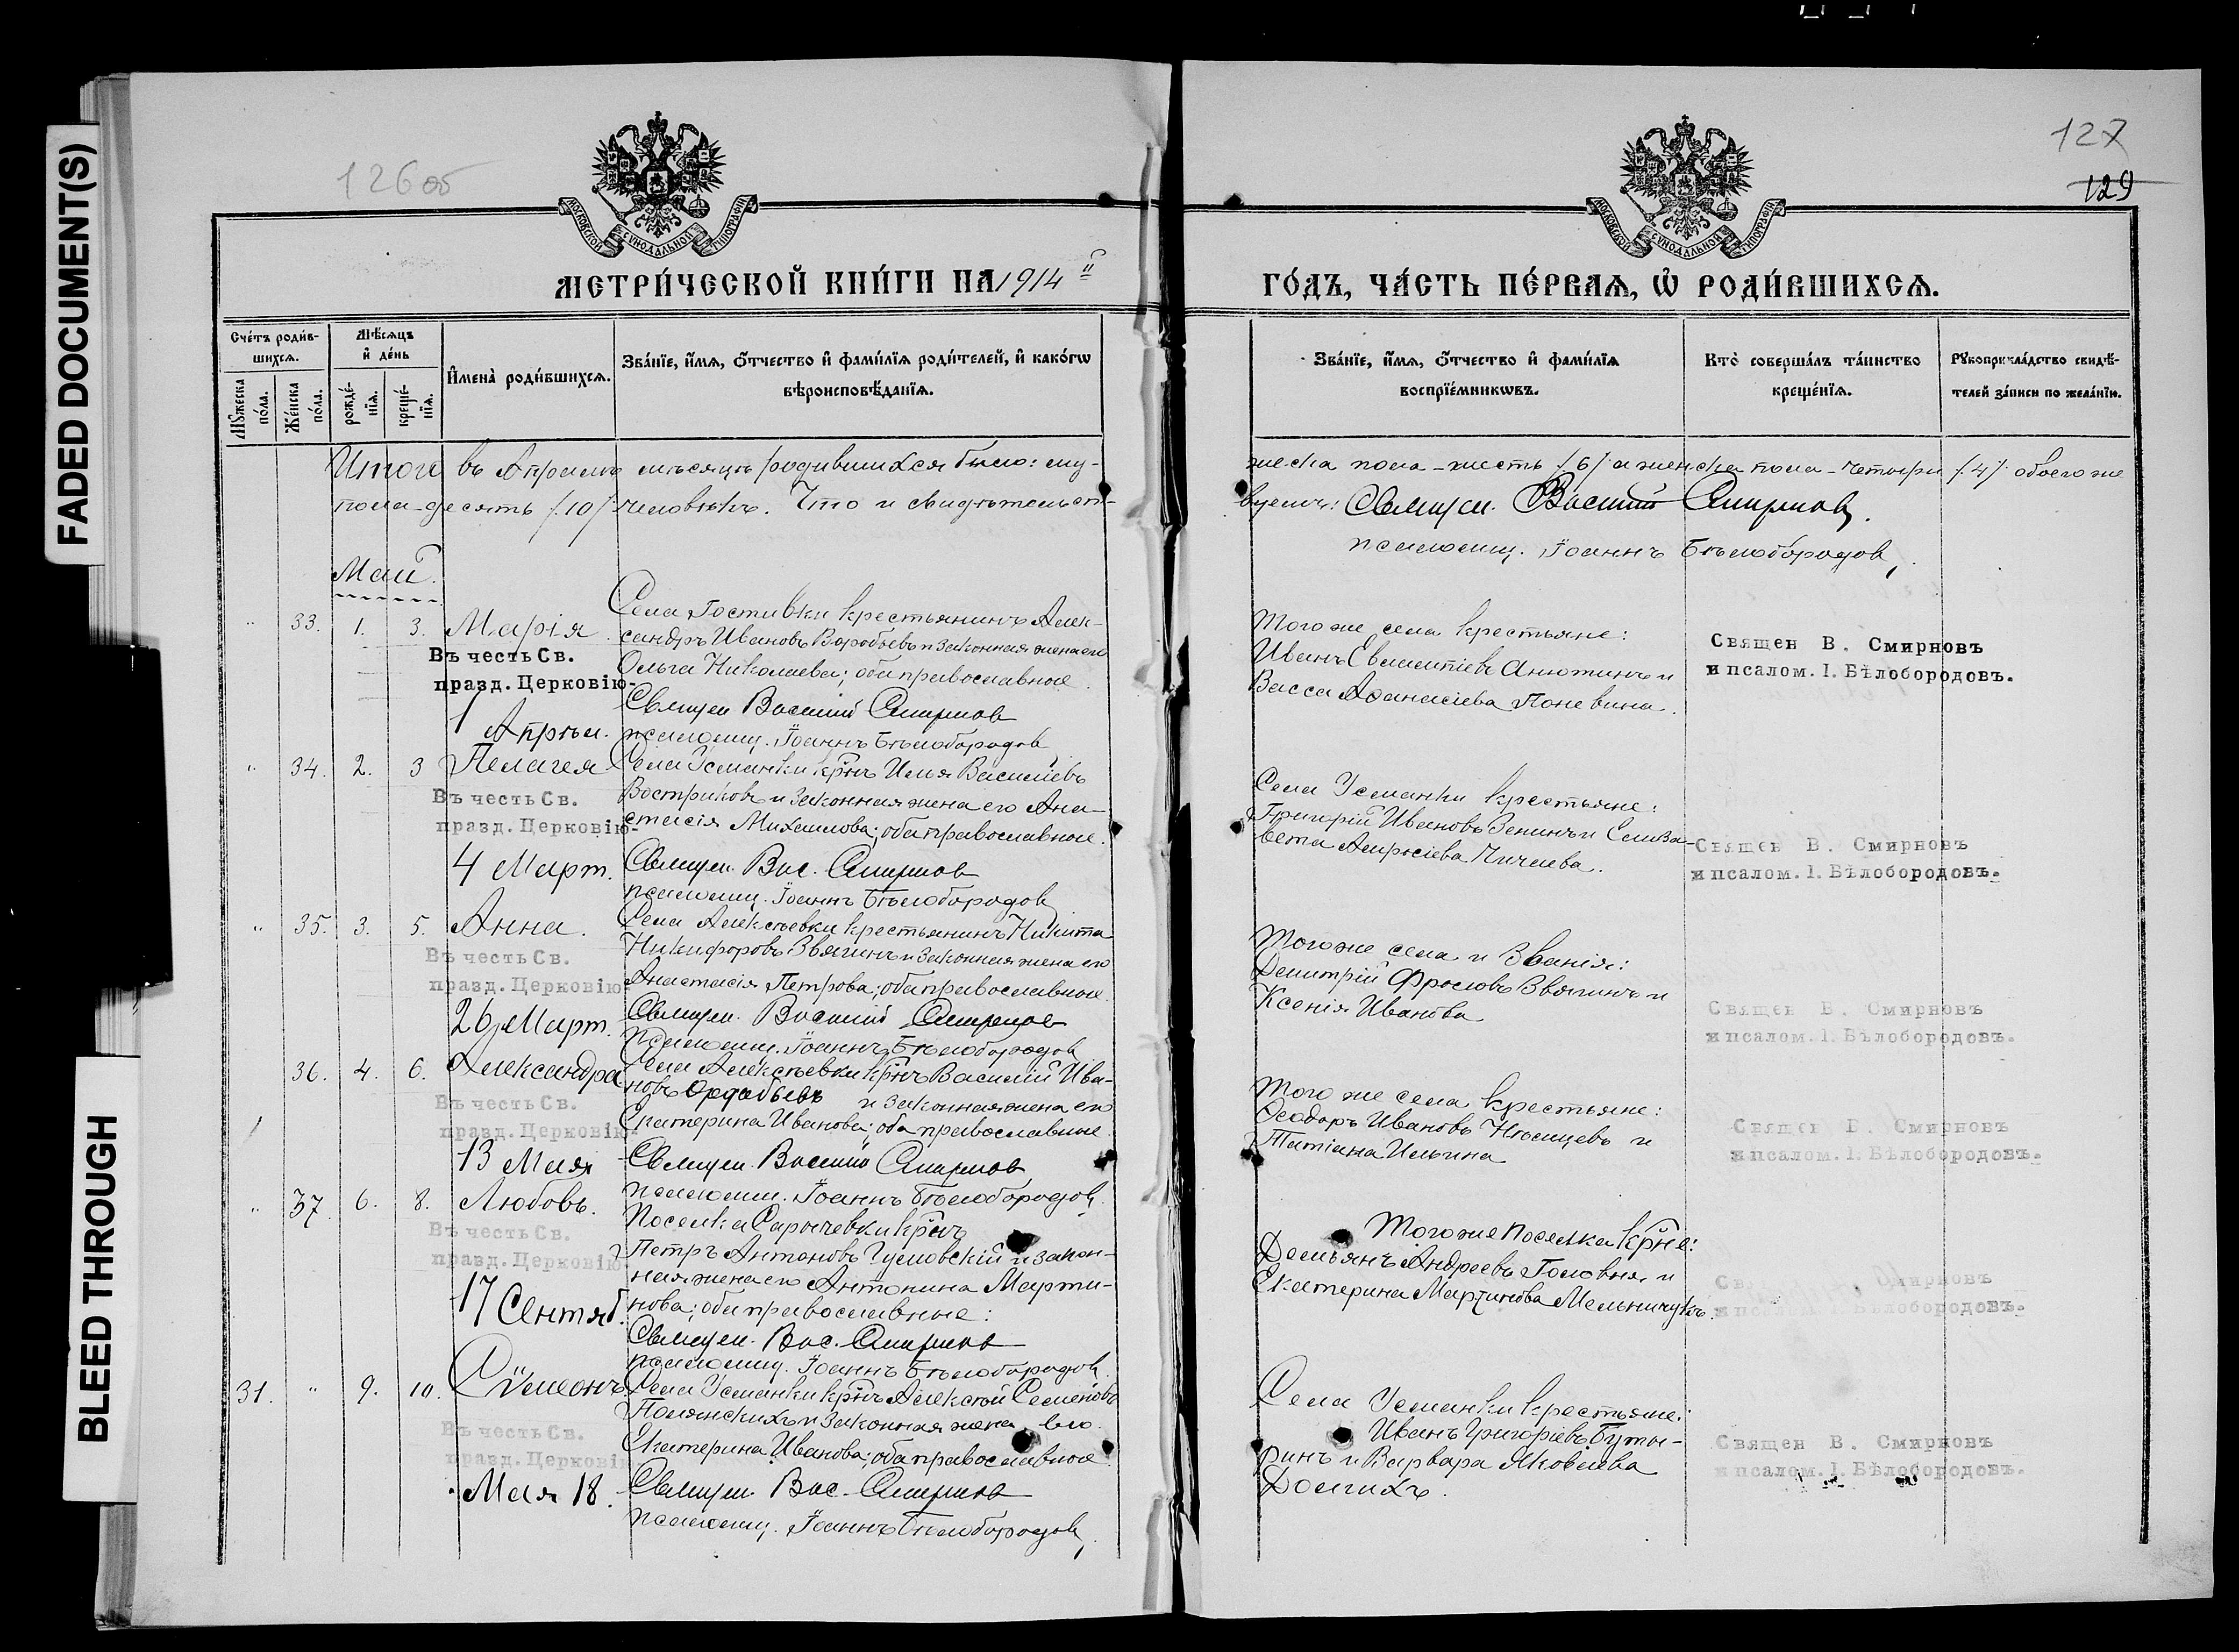 FADED DOCUMENT(S)
BLEED THROUGH
126 об
127
129
МОСКОВСКОЙ СѴНОДАЛЬНОЙ ТИПОГРАФІИ
МОСКОВСКОЙ СѴНОДАЛЬНОЙ ТИПОГРАФІИ
МЕТРИ́ЧЕСКОЙ КНИ́ГИ НА 1914 й
ГО́ДЪ, ЧА́СТЬ ПЕ́РВАѦ, Ѡ҆ РОДИ́ВШИХСѦ.
Сче́тъ роди́в-
шихсѧ.
Мѣ́сѧцъ
и҆ де́нь
Мꙋ́жеска по́ла.
Же́нска по́ла.
рожде́-
нїѧ.
креще́-
нїѧ.
И҆мена̀ роди́вшихсѧ.
Зва́нїе, и҆́мѧ, ѻ҆́тчество и҆ фами́лїѧ роди́телей, и҆ како́гѡ
вѣроисповѣ́данїѧ.
Зва́нїе, и҆́мѧ, ѻ҆́тчество и҆ фами́лїѧ
воспрїе́мникѡвъ.
Кто̀ соверша́лъ та́инство
креще́нїѧ.
Рꙋкоприкла́дство свидѣ́-
телей за́писи по жела́нїю.
Итого въ Апрѣлѣ мѣсяцѣ родившихся было: му-
жеска пола - шесть /6/ а женска пола - четыре /4/ обоего же
пола - десять /10/ человѣкъ. Что и свидѣтельст-
вуемъ: Священ. Василій Смирнов.
псаломщ. Іоаннъ Бѣлобородов.
Май.
" 33. 1. 3. Марія.
Въ честь Св.
празд. Церковію-
1 Апрѣл.
Села Гостивки крестьянинъ Алек-
сандръ Ивановъ Воробьевъ и законная жена его
Ольга Николаева; оба православные.
Священ Василій Смирнов
псаломщ. Іоаннъ Бѣлобородов
Того же села крестьяне:
Иванъ Евлампіевъ Анютинъ и
Васса Афанасіева Поневина.
Священ В. Смирновъ
и псалом. І. Бѣлобородовъ.
" 34. 2. 3 Пелагея
Въ честь Св.
празд. Церковію-
4 Март.
Села Усманки кр̃нъ Илья Васильевъ
Востриковъ и законная жена его Ана-
стасія Михаилова; оба православные.
Священ. Вас. Смирнов
псаломщ. Іоаннъ Бѣлобородов
Села Усманки крестьяне:
Григорій Ивановъ Зенинъ и Елиза-
вета Амросіева Чичаева.
Священ В. Смирновъ
и псалом. І. Бѣлобородовъ.
" 35. 3. 5. Анна.
Въ честь Св.
празд. Церковію
26 Март.
Села Алексѣевки крестьянинъ Никита
Никифоровъ Звягинъ и законная жена его
Анастасія Петрова; оба православные.
Священ. Василій Смирнов
псаломщ. Іоаннъ Бѣлобородов
Того же села и званія:
Димитрій Фроловъ Звягинъ и
Ксенія Иванова
Священ В. Смирновъ
и псалом. І. Бѣлобородовъ.
36. 4. 6. Александра
Въ честь Св.
празд. Церковію-
13 Мая
Села Алексѣевки кр̃нъ Василій Ива-
новъ и законная жена его
Екатерина Иванова; оба православные
Священ. Василій Смирнов
псаломщ. Іоаннъ Бѣлобородов.
Того же села крестьяне:
Ѳеодоръ Ивановъ и
Татіана Ильина
Священ В. Смирновъ
и псалом. І. Бѣлобородовъ.
" 37. 6. 8. Любовь.
Въ честь Св.
празд. Церковію
17 Сентяб.
Поселка Сарычевки кр̃нъ
Петръ Антоновъ Гуловскій и закон-
ная жена его Антонина Марти-
нова; оба православные:
Священ. Вас. Смирнов
псаломщ. Іоаннъ Бѣлобородов.
Того же поселка кр̃не:
Демьянъ Андреевъ Головня и
Екатерина Мартинова Мельничукъ.
Смирновъ
и псалом. І. Бѣлобородовъ.
31. " 9. 10. Сѵмеонъ.
Въ честь Св.
празд. Церковію
Мая 18.
Села Усманки кр̃нъ Алексѣй Семеновъ
Полянскихъ и законная жена его
Екатерина Иванова; оба православные.
Священ. Вас. Смирнов
псаломщ. Іоаннъ Бѣлобородов.
Села Усманки крестьяне:
Иванъ Григорьевъ Буты-
ринъ и Варвара Яковлева
Долгихъ.
Священ В. Смирновъ
и псалом. І. Бѣлобородовъ.